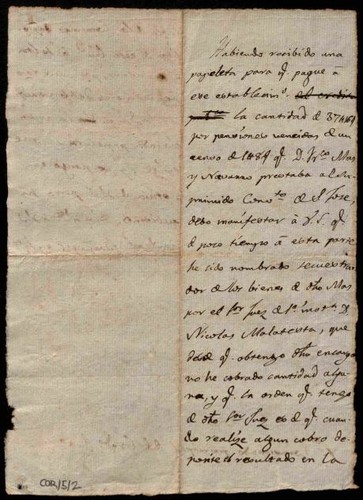 Habiendo recibido una
papeleta para q.e pague à
ese establecim.to del credito
pub.co la cantidad d
por pensiones vencidas d un
d q.e D. Fr.co Mas
y Navarro prestaba al su
primido Conv.to de S. Jose,
debo manifestar à V.S. q.e
d poco tiempo à esta parte
he sido nombrado secuestra
dor de los bienes d dho Mas
por el Sor Juez de 1.a inst.a D
Nicolas Malatesta, que
desde q.e obtengo dho encargo
no he cobrado cantidad algu
na, y q.e la orden q.e tengo
de dho Sor Juez es d q.e cuan
do realize algun cobro de
posite el resultado en la
COR/5/2